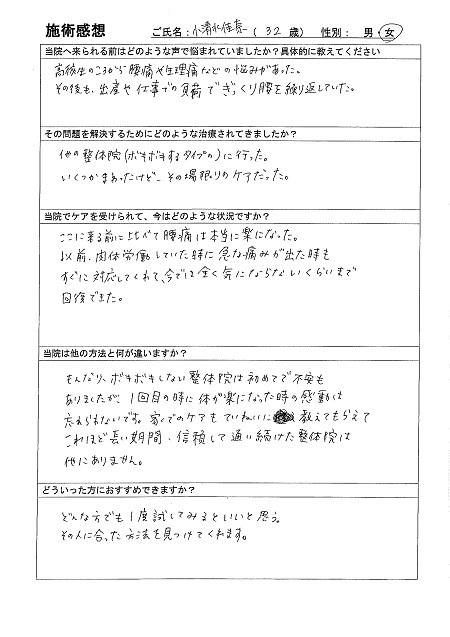 施術感想 ご氏名: 小清水佳恵 ( 32 歳) 性別: 男・女
当院へ来られる前はどのような声で悩まれていましたか?具体的に教えてください
高校生のころから腰痛や生理痛などの悩みがあった。
その後も、出産や仕事での負荷でぎっくり腰を繰り返していた。
その問題を解決するためにどのような治療されてきましたか?
他の整体院(ボキボキするタイプの)に行った。
いくつかまわったけど、その場限りのケアだった。
当院でケアを受けられて、今はどのような状況ですか?
ここに来る前に比べて腰痛は本当に楽になった。
以前、肉体労働していた時に急な痛みが出た時も
すぐに対応してくれて、今では全く気にならないくらいまで
回復できた。
当院は他の方法と何が違いますか?
もんだり、ボキボキしない整体院は初めてで不安も
ありましたが、1回目の時に体が楽になった時の感動は
忘れられないです。家でのケアもていねいに教えてもらえて
これほど長い期間、信頼して通い続けた整体院は
他にありません。
どういった方におすすめできますか?
どんな方でも1度試してみるといいと思う。
その人に合った方法を見つけてくれます。